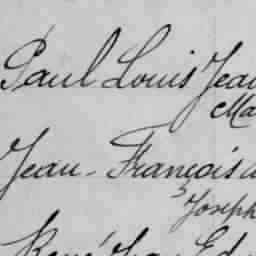 Paul Louis Jean
Ma
Jean-François
Joseph
René